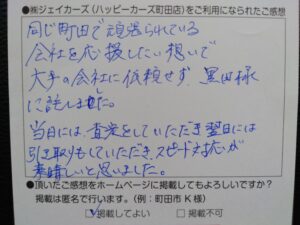 ●㈱ジェイカーズ(ハッピーカーズ町田店)をご利用になられたご感想
同じ町田で頑張られている
会社を応援したい想いで
大手の会社に依頼せず、黒田様
に託しました。
当日には、査定をしていただき翌日には
引き取りもしていただき、スピード対応が
素晴しいと思いました。
●頂いたご感想をホームページに掲載してもよろしいですか?
掲載は匿名で行います。(例:町田市K様)
☑掲載してよい □掲載不可